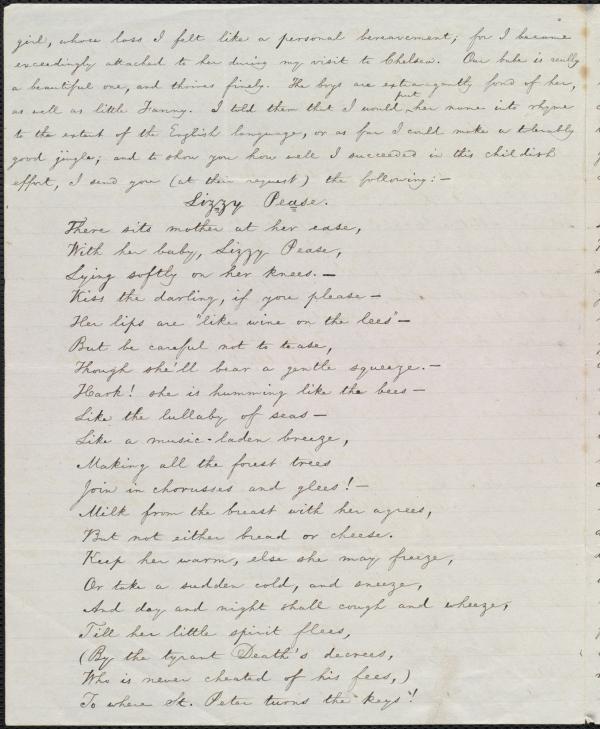 girl, whose loss I felt like a personal bereavement; for I became
exceedingly attached to her during my visit to Chelsea. Our babe is really
a beautiful one, and thrives finely. The boys are extravagantly fond of her,
as well as little Fanny. I told them that I would put her name into rhyme
to the extent of the English language, or as far I could make a tolerably
good jingle; and to show you how well I succeeded in this childish
effort, I send you (at their request) the following:—
Lizzy Pease.
There sits mother at her ease,
With her baby, Lizzy Pease,
Lying softly on her knees.—
Kiss the darling, if you please—
Her lips are "like wine on the lees"—
But be careful not to tease,
Though she'll bear a gentle squeeze.—
Hark! she is humming like the bees—
Like the lullaby of seas—
Like a music-laden breeze,
Making all the forest trees
Join in chorusses and glees!—
Milk from the breast with her agrees,
But not either bread or cheese.
Keep her warm, else she may freeze,
Or take a sudden cold, and sneeze,
And day and night shall cough and wheeze,
Till her little spirit flees,
(By the tyrant Death's decrees,
Who is never cheated of his fees,)
To where St. Peter turns the keys!